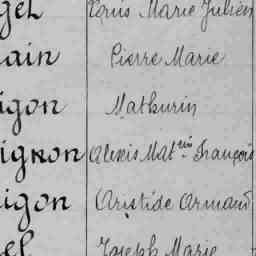 gel Louis Marie Julien
ain Pierre Marie
igon Mathurin
ignon Alexis Mat.rin François
igon Aristide Armand
el Joseph Marie